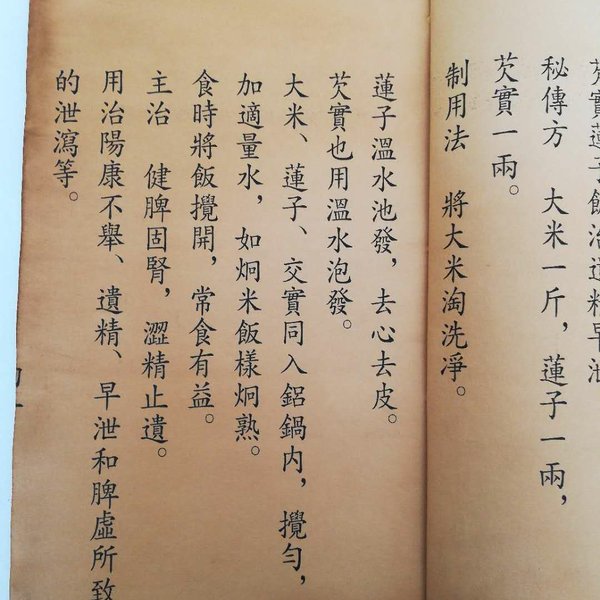 芡實蓮子飯治遺精早泄
秘傳方　大米一斤，蓮子一兩，
芡實一兩。
制用法　將大米淘洗凈。
蓮子溫水池發，去心去皮。
芡實也用溫水泡發。
大米、蓮子、交實同入鋁鍋内，攪勻，
加適量水，如炯米飯樣炯熟。
食時將飯攪開，常食有益。
主治　健脾固腎，澀精止遺。
用治陽康不舉、遺精、早泄和脾虛所致
的泄瀉等。